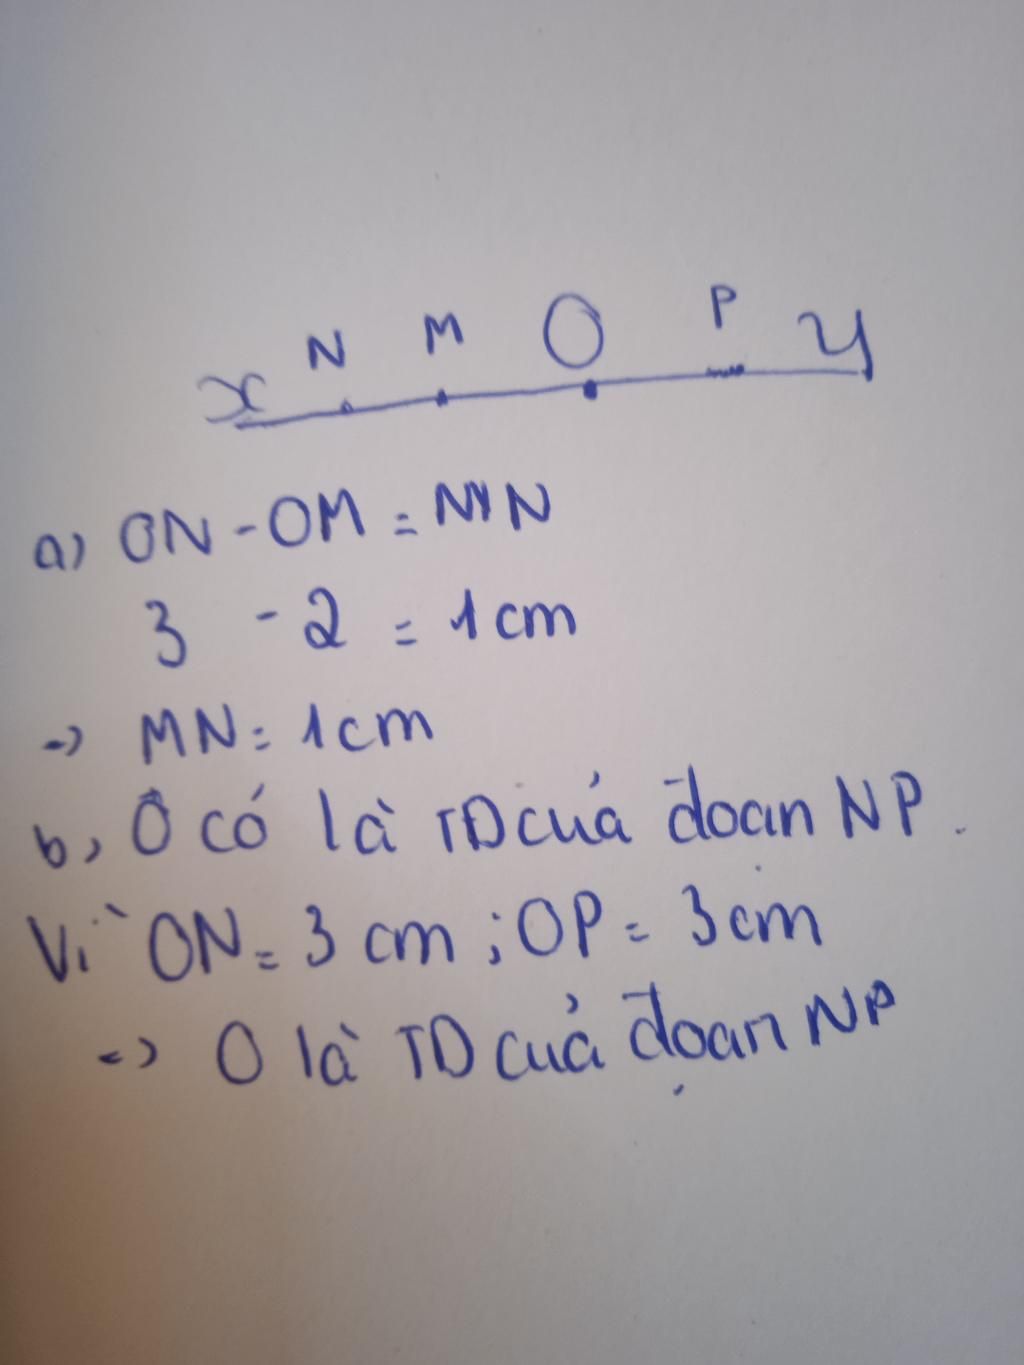 N M O P
x y
a) ON - OM = MN
3 - 2 = 1cm
-> MN = 1cm
b, O có là TĐ của đoạn NP.
Vì ON = 3 cm ; OP = 3cm
=> O là TĐ của đoạn NP